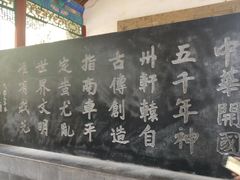 中華開國
五千年神
州軒轅自
古傳創造
指南車平
定蚩尤亂
世界文明
唯有我先